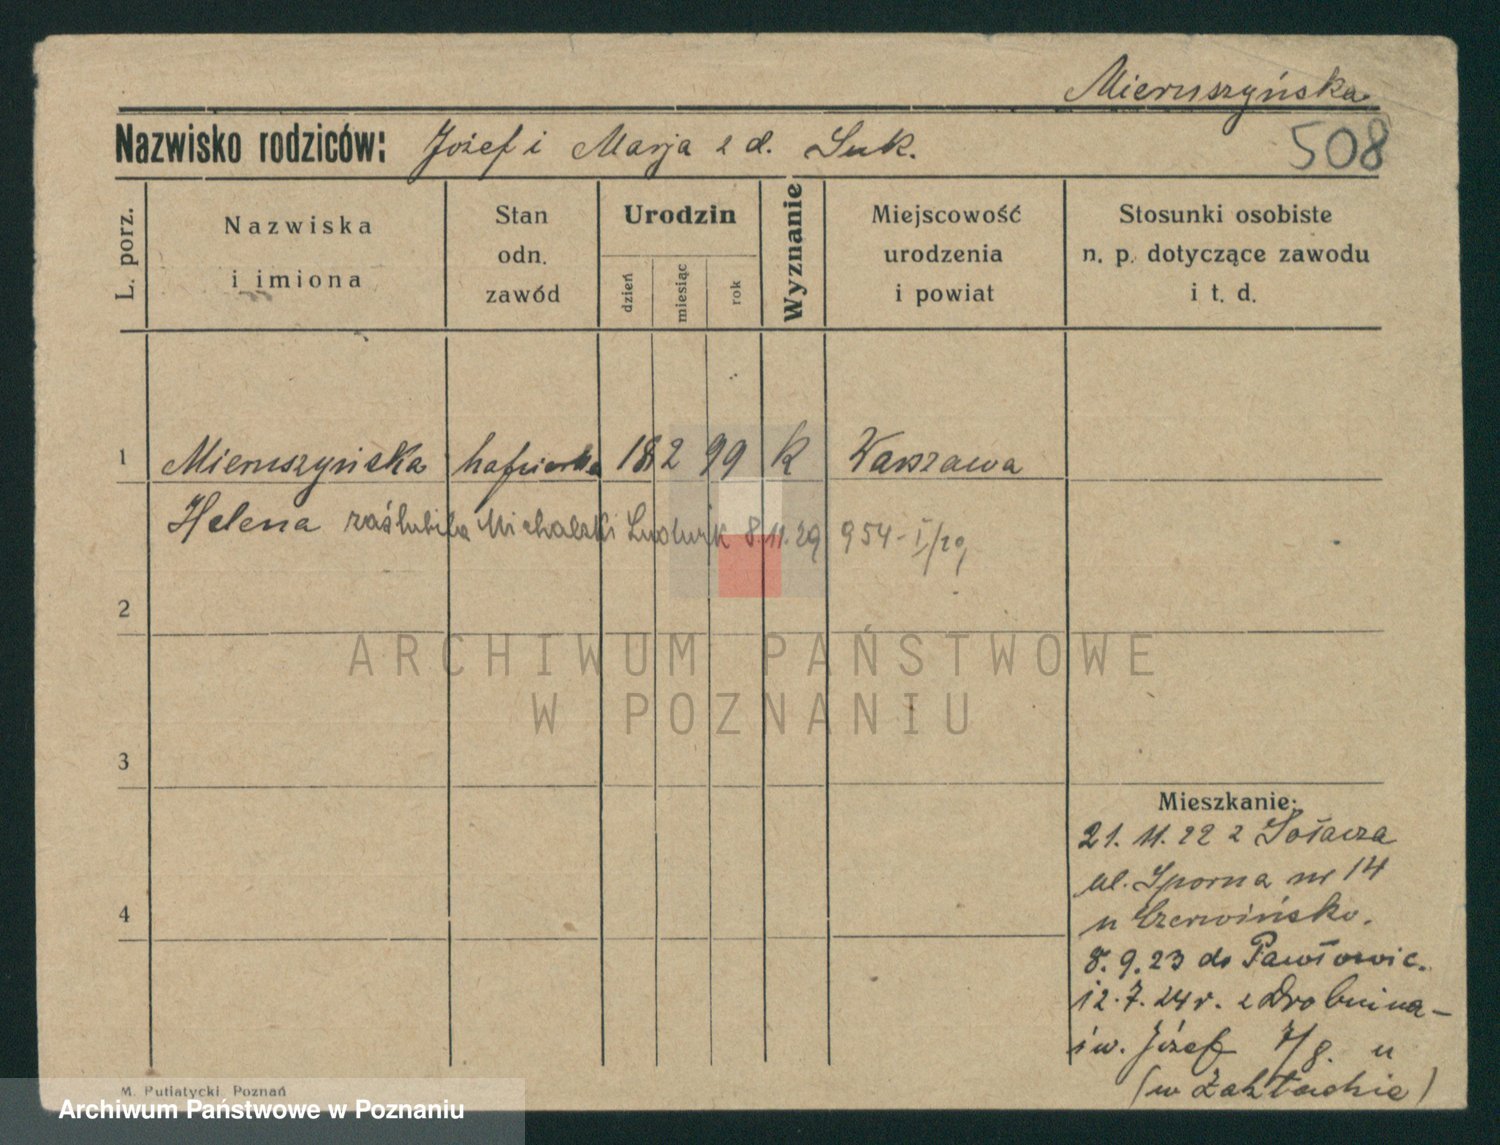 Mieruszyńska
508
Nazwisko rodziców: Józef i Marja z d. Luk.
L. porz.
Nazwiska
i imiona
Stan
odn.
zawód
Urodzin
dzień
miesiąc
rok
Wyznanie
Miejscowość
urodzenia
i powiat
Stosunki osobiste
n. p. dotyczące zawodu
i t. d.
1 Mieruszyńska hafciarka 18 2 99 k Warszawa
Helena zaślubiła Michalski Ludwik 8.11.29 954-I/29
2
ARCHIWUM PAŃSTWOWE
W POZNANIU
3
4
Mieszkanie:
21. 11. 22 z Sołacza
ul. Sporna nr 14
u Czerwińsko.
8. 9. 23 do Pawłowic.
12. 7. 24 r. z Drobnina-
św. Józef 7/8. u
(w Zakładzie)
M. Putiatycki, Poznań
Archiwum Państwowe w Poznaniu